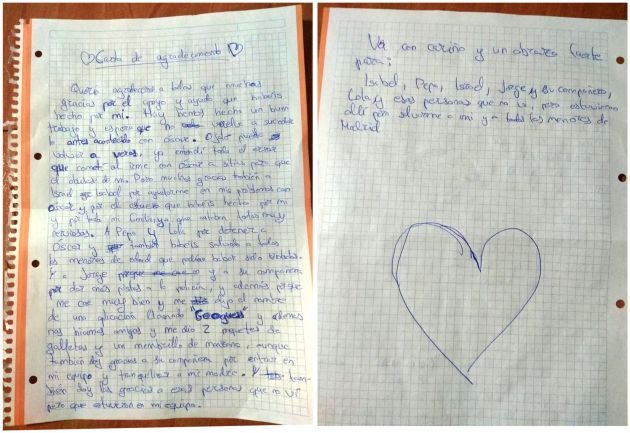 Carta de agradecimiento
Quería agradecer a todos que muchas
gracias por el apoyo y ayuda que habéis
hecho por mi. Hoy hemos hecho un buen
trabajo y espero que no vuelve a suceder
lo antes acontecido con oscar. Ojalá pueda
volver a veros, yo entendí todo el error
que cometí al irme con oscar a sitios pero que
el de mi. Pero muchas gracias también a
Israel Isabel por ayudarme en mis problemas con
oscar y por el que habéis hecho por mi
y por toda mi familia ya que estaban todos muy
nerviosos. A Pepa y Lola por detener a
Oscar y también habéis salvado a todos
los menores de edad que podrían haber sido
Y a Jorge y a su compañera
por dar más pistas a la policía, y además porque
me cae muy bien y me dijo el nombre
de una aplicación llamada "Geoguess" y además
nos hicimos amigos y me dio 2 paquetes de
galletas y un membrillo de manzana, aunque
también doy gracias a su compañera por entrar en
mi equipo y tranquilizar a mi madre. Y tam-
bién doy las gracias a esas personas que no vi
pero que estuvieron en mi equipo.
Va con cariño y un abrazo fuerte
para:
Isabel, Pepa, Israel, Jorge y su compañera,
Lola y esas personas que no vi, pero estuvieron
allí para salvarme a mi y a todos los menores de
Madrid